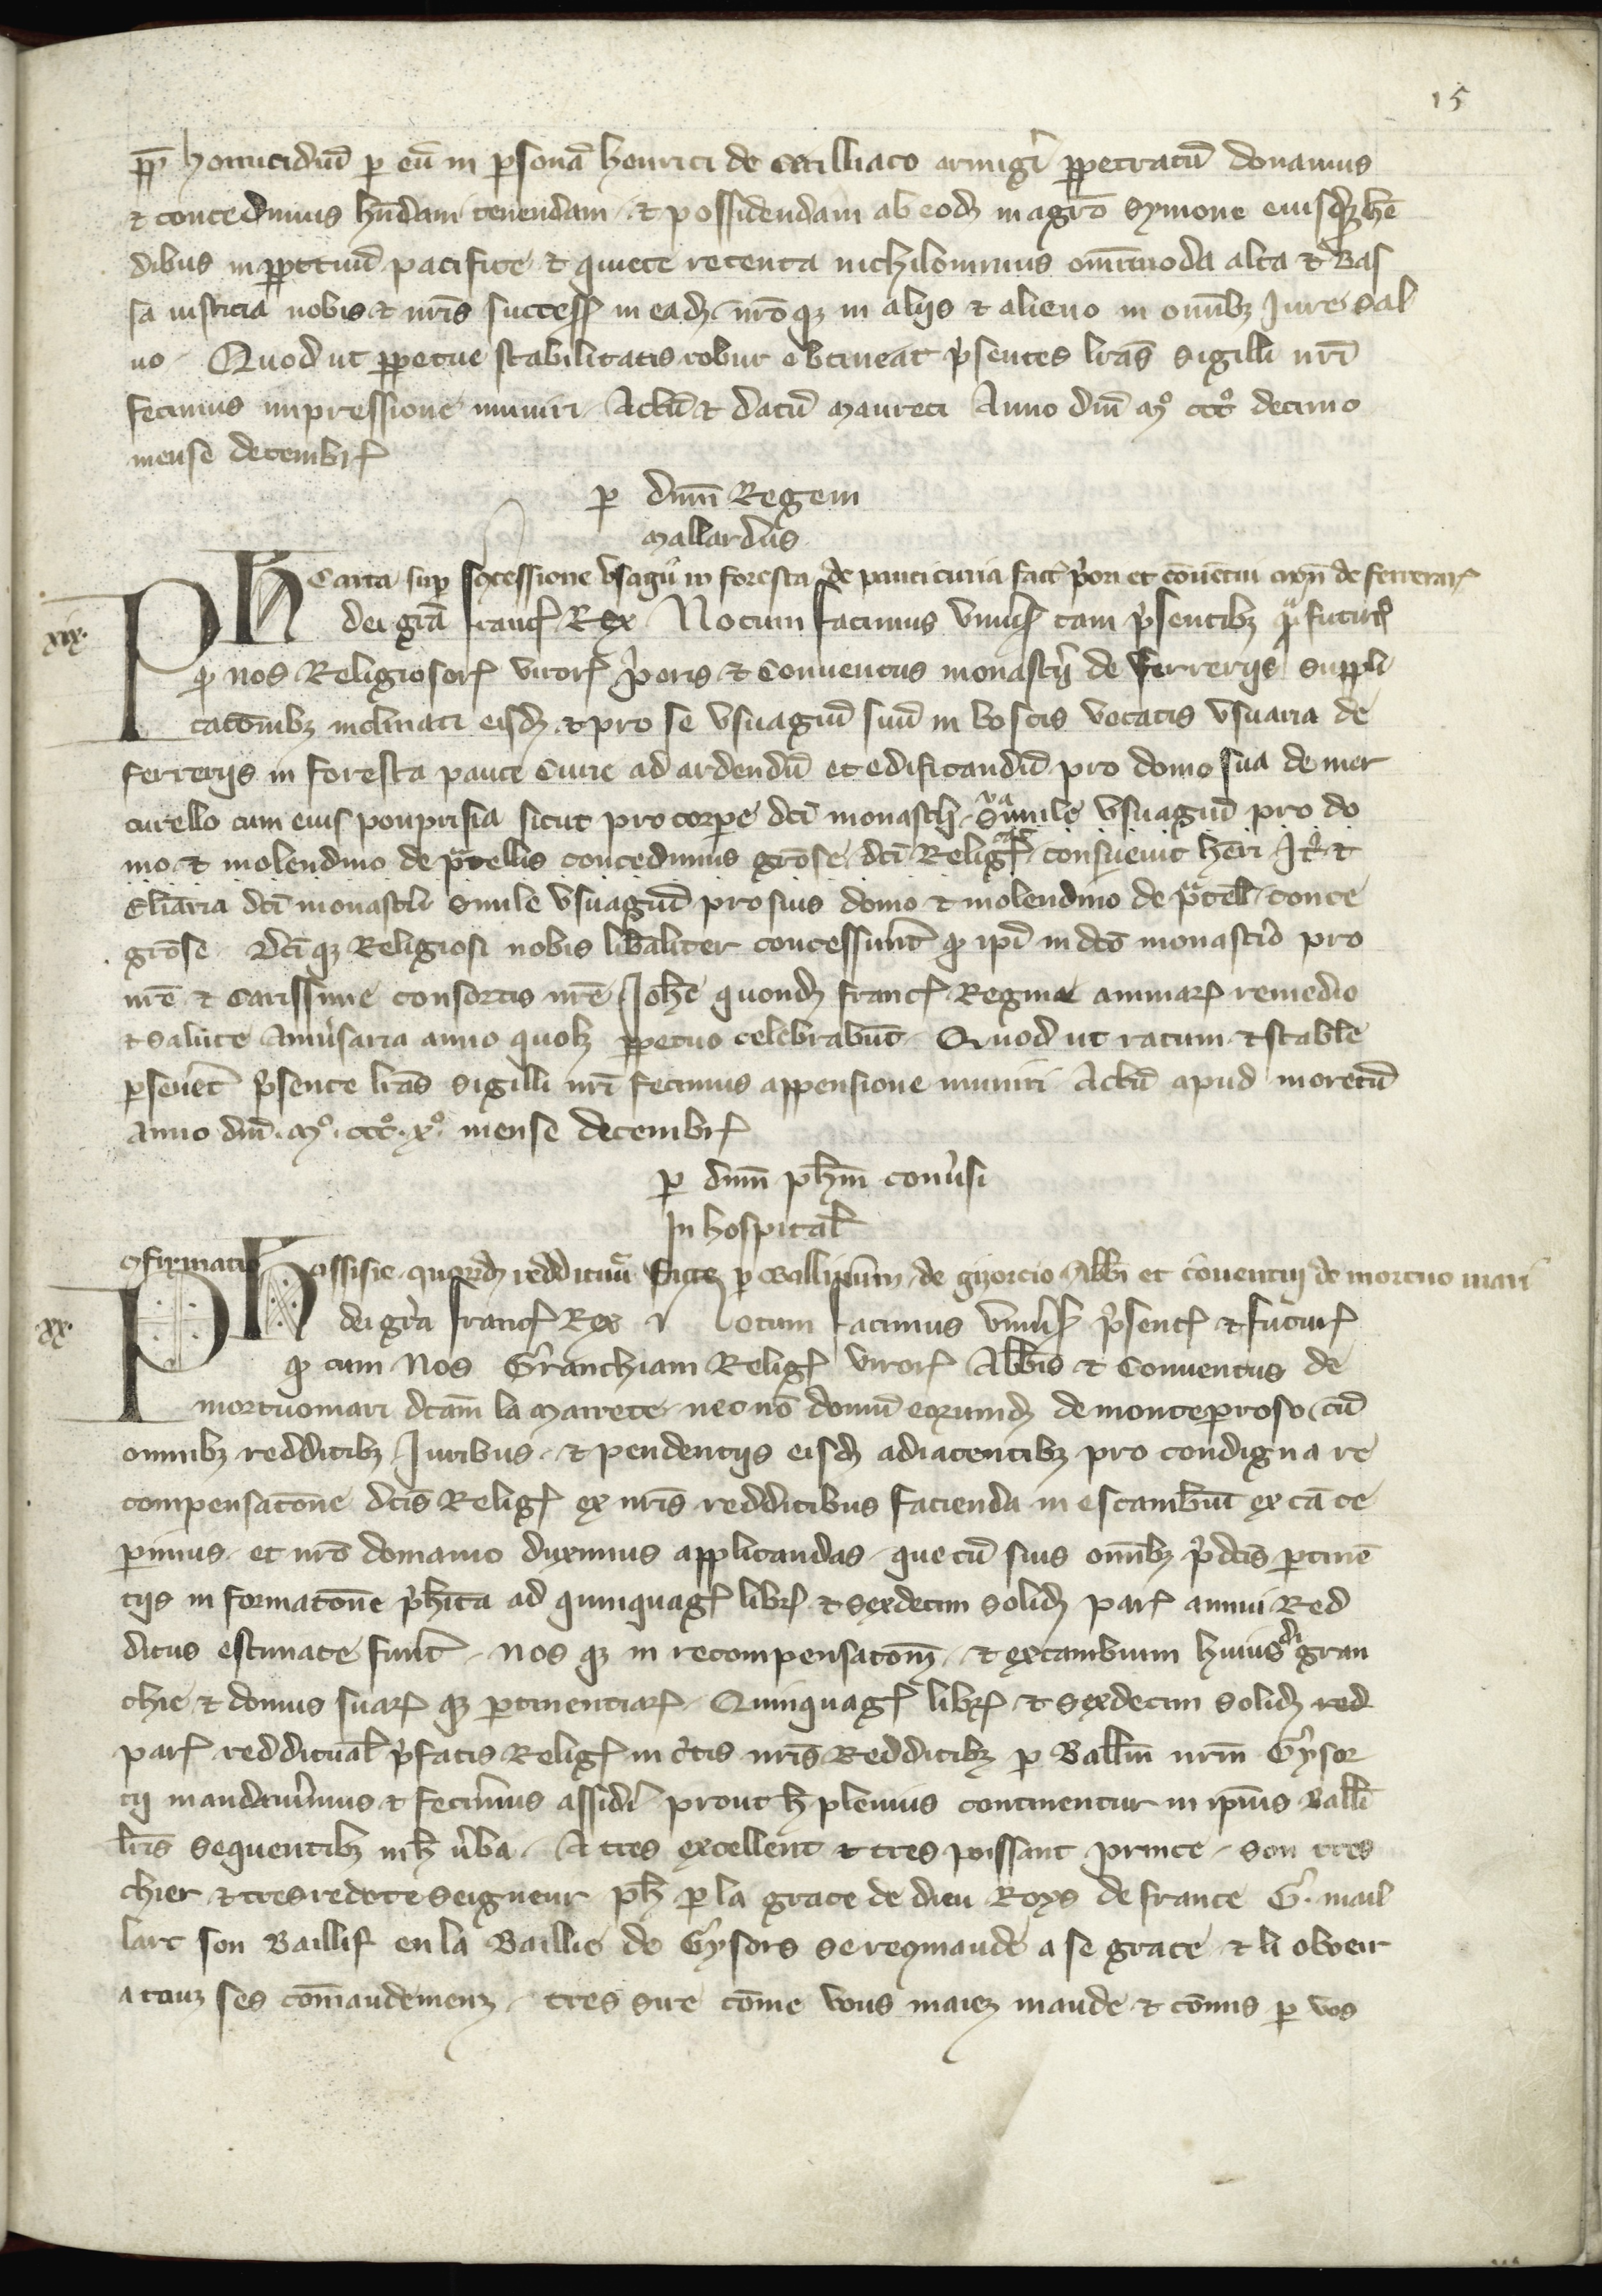 15
pp homicidiū p eū in psonā henrici de Cailliaco armigi ppetratū donamus
& concedimus hn̄dam tenendam & possidendam ab eodȝ magr̄o Symone eiusqȝ he
dibus in ppetuū pacifice & quiete retenta nichilominus omīmoda alta & Bas
sa iusticia nobis & nr̄is success in eadȝ nr̄oqȝ in aliis & alieno in omībȝ Jure sal
uo Quod ut ppetue stabilitatis robur obtineat p̄sentes lr̄as sigilli nr̄i
fecimus impressione muniri Actū & datū maureti Anno dn̄i mº cccº decimo
mense decembr
p dn̄m Regem
mallardus
xix.
Carta sup concessione vsagii in foresta de paucicuria fact p̄ori et conuētui de ferrerar
Ph dei grā franc Rex Notum facimus vniūs tam p̄sentibȝ q̄ futur
qd nos Religiosor viror p̄oris & Conuentus monastīi de ferreriis suppli
cacōnibȝ inclinati eisdȝ & pro se vsuagiū suū in boscis vocatis vsuaria de
ferreriis in foresta pauce Curie ad ardendū et edificandū pro domo sua de mer
curello cum eius pouprisia sicut pro corpe dc̄i monastīi Simile vsuagiū pro do
mo & molendino de p̄tellis concedimus grōse dc̄i Relig consueuit hēri It̄ &
Eliāria dc̄i monastīi Simile vsuagiū pro suis domo & molendino de p̄tell conce
grōse Dc̄iqȝ Religiosi nobis libāliter concessunt qd ip̄i in dc̄o monastīo pro
nr̄e & Carissime consortis nr̄e Johē quondȝ franc Regine animar remedio
& salute Anniūsaria anno quolȝ ppetuo celebrabūt Quod ut ratum & stabile
pseueret p̄sente lr̄as sigilli nr̄i fecimus appensione muniri Actū apud moretū
anno dn̄i mº cccº xº mense decembr
p dn̄m ph̄m conūsi
In hospital
xx.
Cfirmatio assisie quorȝ reddituū sitȝ p Balliuum de gizorcio Abbi et conuentui de mortuo mari
Ph dei grā franc Rex Notum facimus vniūs p̄sent & futur
qd cum Nos Granchiam Relig viror Abbis & Conuentus de
mortuomari dc̄am la mairete necnō domū eorumdȝ de monteproso cū
omnibȝ redditibȝ Juribus & pendentiis eisdȝ adiacentibȝ pro condigna re
compensatōne dc̄is Relig ex nr̄is redditibus facienda in escambiū ex cā ce
pimus et nr̄o domanio duximus applicandas que cū suis omībȝ p̄dc̄is ptinē
tiis informatōne p̄hīta ad quinquag libr & sexdecim solidȝ par annui Red
ditus estimate funt Nos qȝ in recompensatōnȝ & excambium huius di gran
chie & domus suar qȝ ptinentiar Quinquag libr & sexdecim solidȝ red
par reddituał p̄fatis Relig in c̄tis nr̄is Redditibȝ p Ballm̄ nrm̄ Gysor
tii mandauimus & fecimus assidi prout h plenius continentur in ip̄ius Balli
lr̄is sequentibȝ in h ūba A tres excellent & tres poissant prince son tres
chier & tres redote seigneur ph p la grace de dieu Roys de france G. mail
lart son Baillif en la Baillie de Gysors se reqmande a se grace & li obeir
a touȝ ses com̄andemenȝ tres sire cōme vous maieȝ mande & cōmis p vos